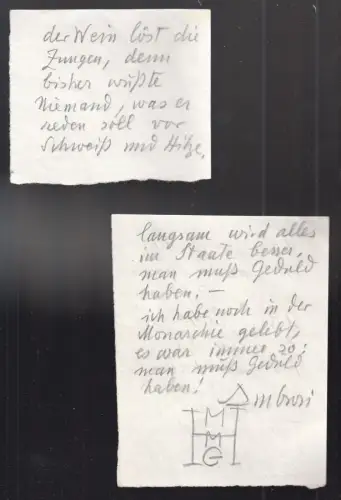 der Wein löst die
Zungen, denn
bisher wußte
Niemand, was er
reden soll vor
Schweiß und Hitze.
langsam wird alles
im Staate besser,
man muß Geduld
haben; —
ich habe noch in der
Monarchie gelebt,
es war immer so;
man muß Geduld
haben!